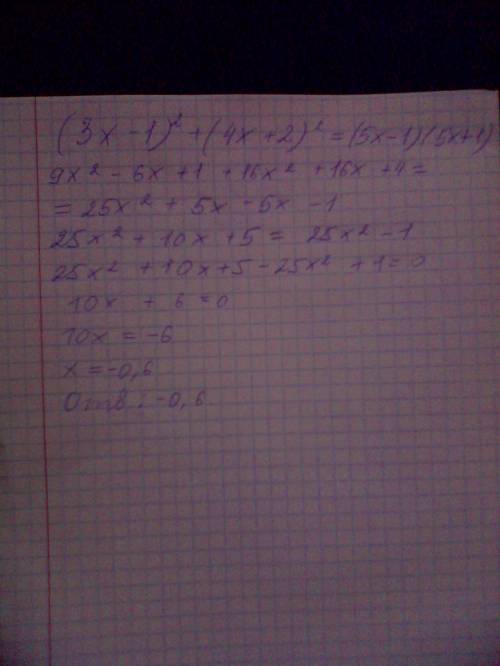 (3x - 1)² + (4x + 2)² = (5x - 1)(5x + 1)
9x² - 6x + 1 + 16x² + 16x + 4 =
= 25x² + 5x - 5x - 1
25x² + 10x + 5 = 25x² - 1
25x² + 10x + 5 - 25x² + 1 = 0
10x + 6 = 0
10x = -6
x = -0,6
Отв: -0,6